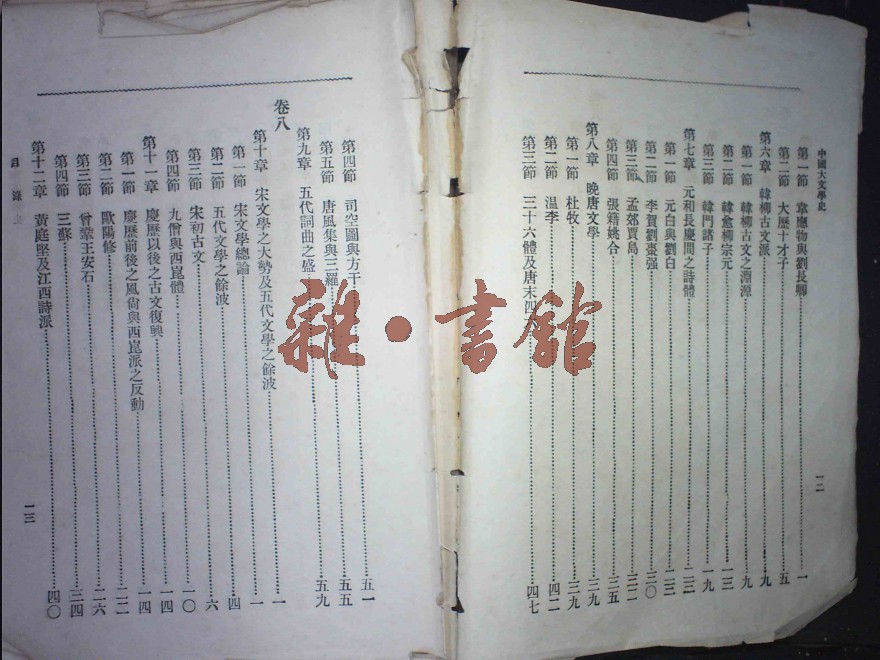 中國大文學史
一二
第一節 韋應物與劉長卿 一
第二節 大歷十才子 五
第六章 韓柳古文派 九
第一節 韓柳古文之淵源 九
第二節 韓愈柳宗元 一三
第三節 韓門諸子 一九
第七章 元和長慶間之詩體 二三
第一節 元白與劉白 二三
第二節 李賀劉棗强 三〇
第三節 孟郊賈島 三二
第四節 張籍姚合 三五
第八章 晚唐文學 三九
第一節 杜牧 三九
第二節 温李 四二
第三節 三十六體及唐末四 四七
第四節 司空圖與方干 五一
第五節 唐風集與三羅 五五
第九章 五代詞曲之盛 五九
卷八
第十章 宋文學之大勢及五代文學之餘波 一
第一節 宋文學總論 一
第二節 五代文學之餘波 四
第三節 宋初古文 六
第四節 九僧與西崑體 一〇
第十一章 慶歷以後之古文復興 一四
第一節 慶歷前後之風尙與西崑派之反動 一四
第二節 歐陽修 二二
第三節 曾鞏王安石 二六
第四節 三蘇 三四
第十二章 黃庭堅及江西詩派 四〇
目錄
一三
雜·書館